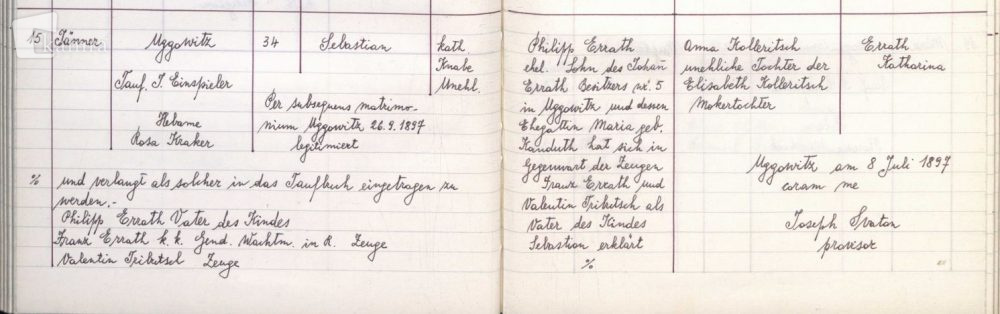 15 Jänner Uggowitz 34 Sebastian kath
Knabe
Unehl.
Tauf. J. Einspieler
Hebame
Rosa Kraker
Per subsequens matrimo-
nium Uggowitz 26.9.1897
legitimiert
Philipp Errath
ehel. Sohn des Johan̄
Errath Besitzers nr. 5
in Uggowitz und dessen
Ehegattin Maria geb.
Kanduth hat sich in
Gegenwart der Zeugen
Franz Errath und
Valentin Tributsch als
Vater des Kindes
Sebastian erklärt
%
Anna Kolleritsch
unehliche Tochter der
Elisabeth Kolleritsch
Mokertochter
Errath
Katharina
Uggowitz am 8 Juli 1897
coram me
Joseph Svaton
provisor
% und verlangt als solcher in das Taufbuch eingetragen zu
werden.-
Philipp Errath Vater des Kindes
Franz Errath k.k. Gend. Wachtm. in R. Zeuge
Valentin Zeuge